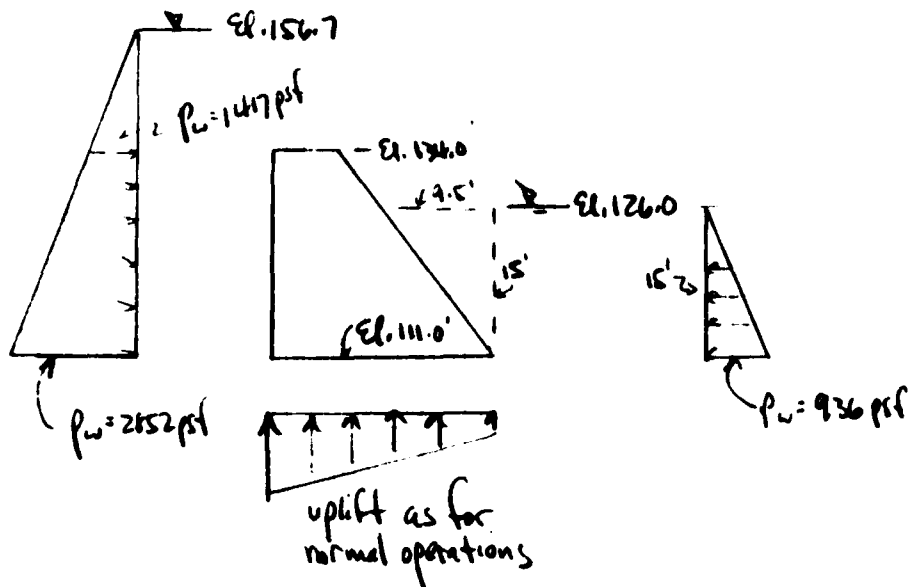 El.156.7
Pw=1417psf
El.134.0
9.5'
El.126.0
15'
15'
El.111.0'
Pw=2852psf
Pw=936 psf
uplift as for
normal operations